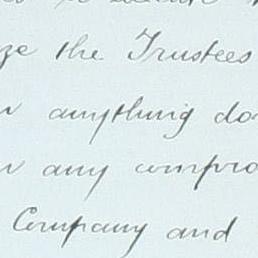 the Trustees
anything do
any compro
Company and